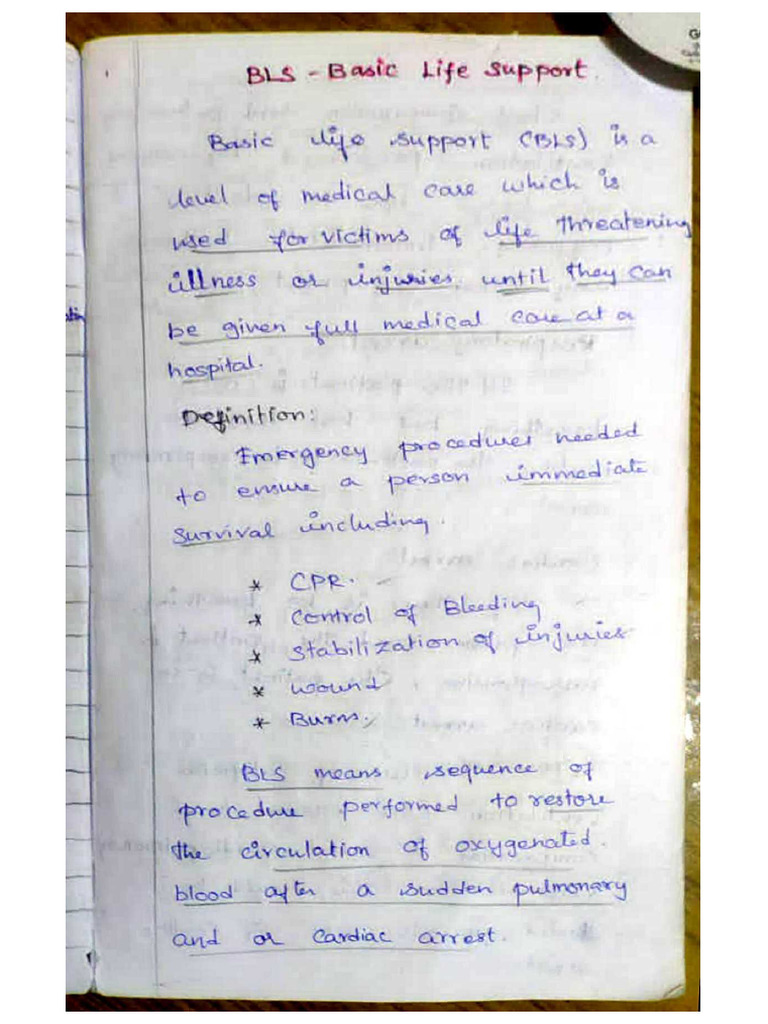 BLS - Basic Life Support.
Basic life support (BLS) is a
level of medical care which is
used for victims of life threatening
illness or injuries until they can
be given full medical care at a
hospital.
Definition:
Emergency procedures needed
to ensure a person immediate
survival including.
* CPR.
* Control of Bleeding
* Stabilization of injuries
* wound
* Burns
BLS means sequence of
procedure performed to restore
the circulation of oxygenated.
blood after a sudden pulmonary
and or cardiac arrest.